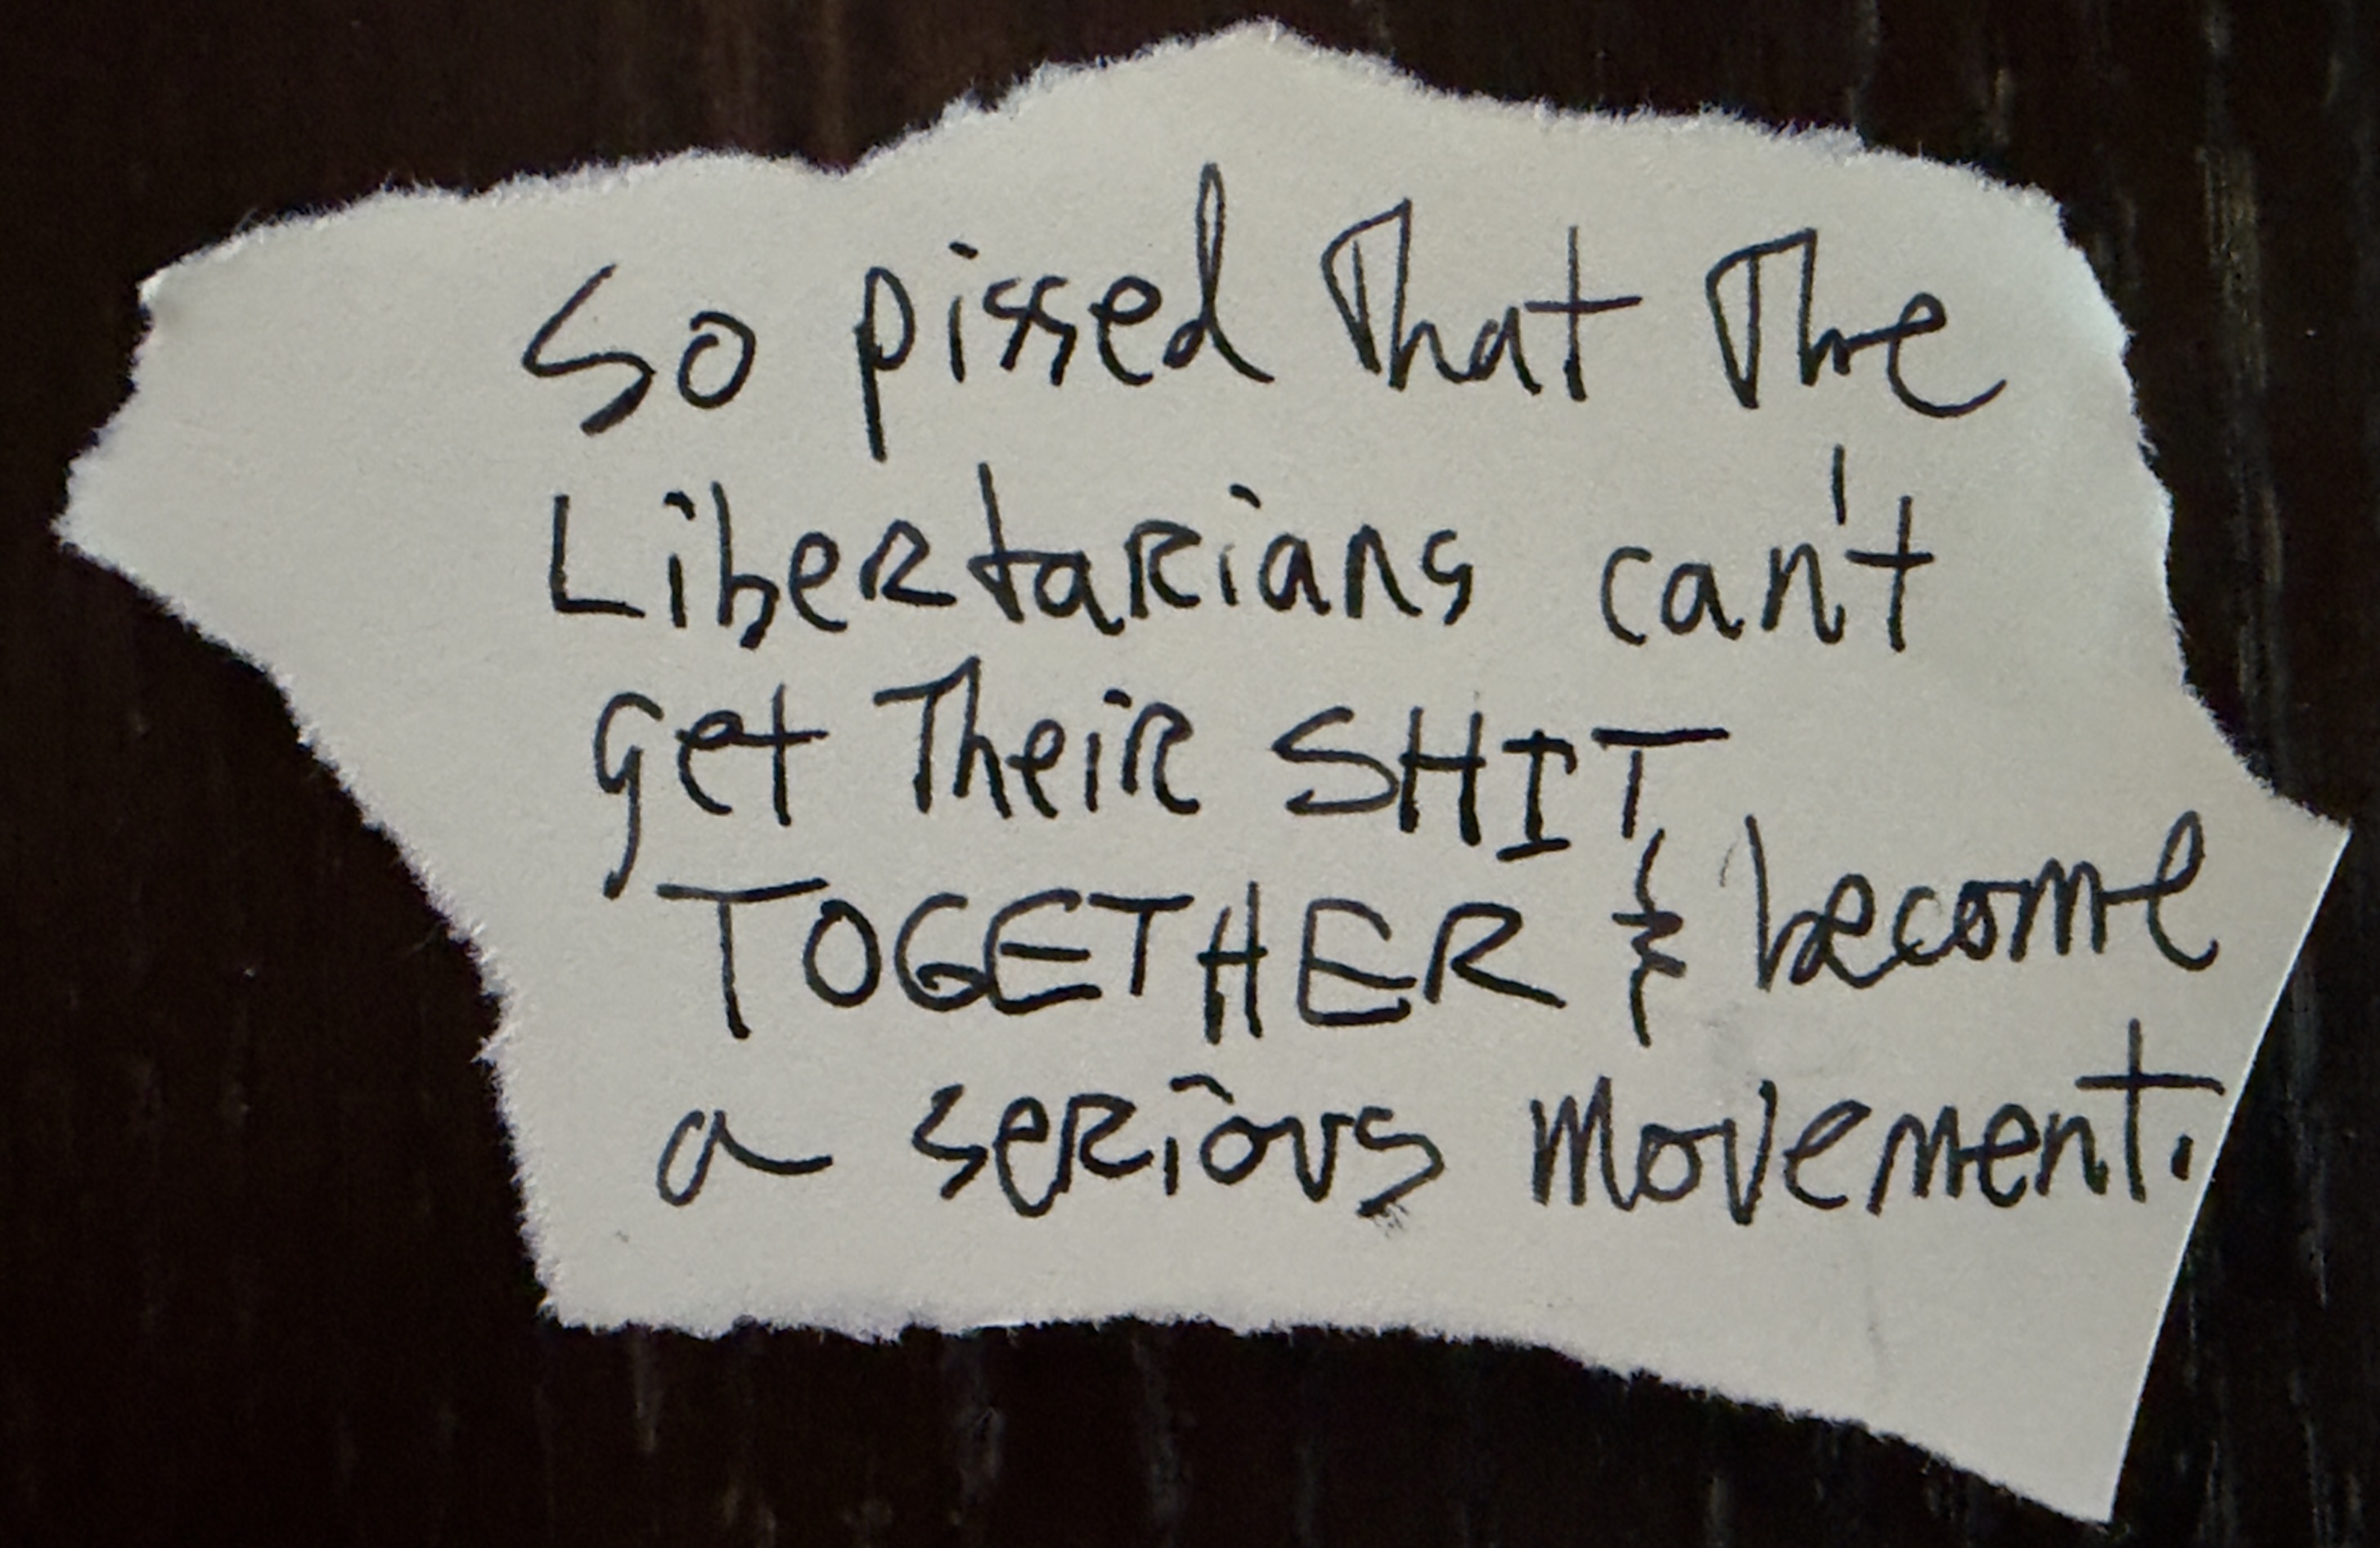 So pissed that the
Libertarians can't
get their SHIT
TOGETHER & become
a serious movement.